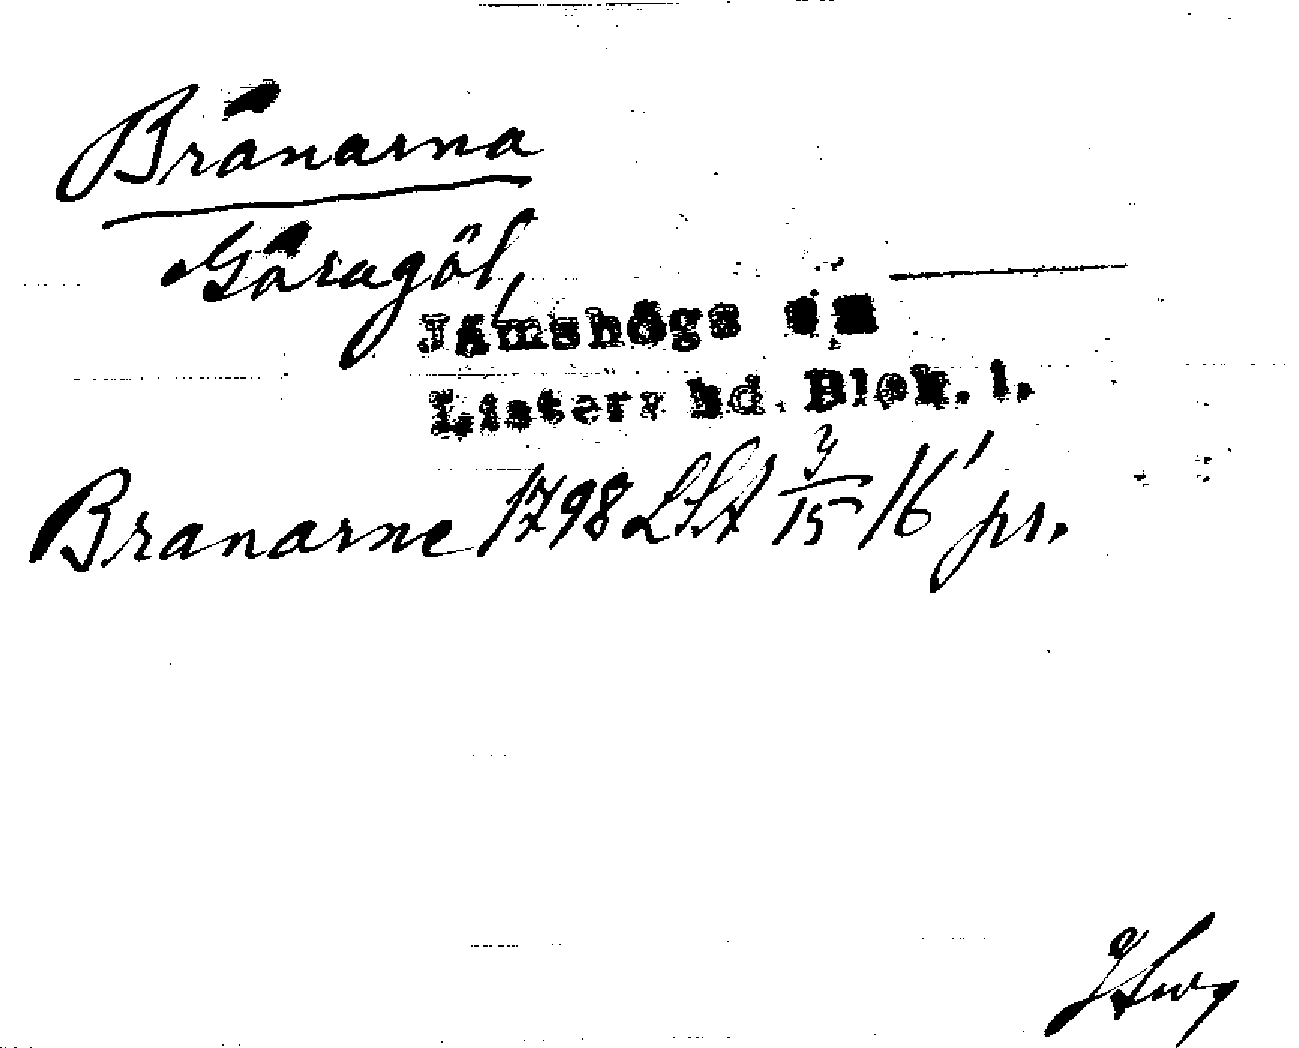 Brånarna
Gåragöl,
Jämshögs sn
Listers hd. Blek. l.
Branarne 1798 LSA 3/15 16' pr.